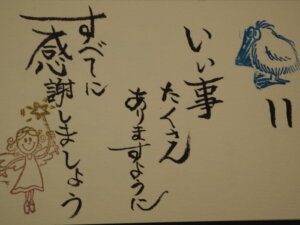 11
いい事
たくさん
ありますように
すべてに
感謝しましょう